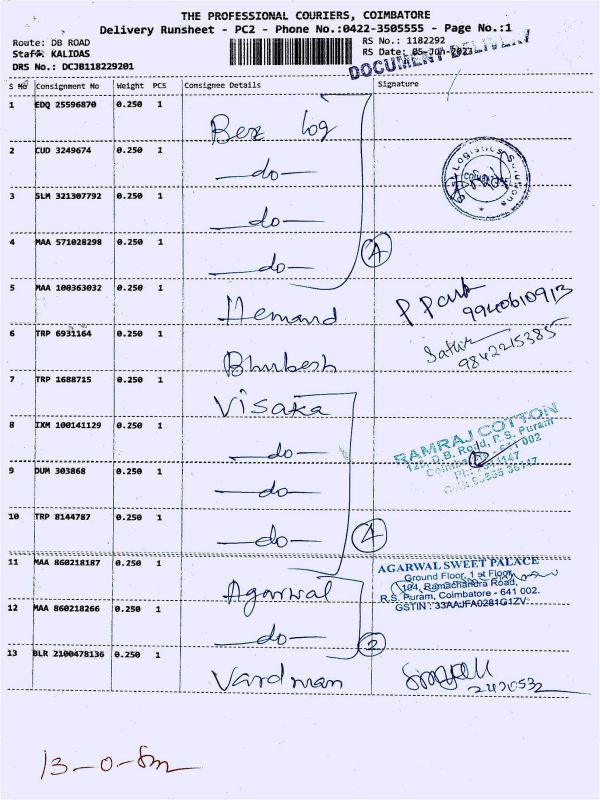 THE PROFESSIONAL COURIERS, COIMBATORE
Delivery Runsheet - PC2 - Phone No.:0422-3505555 - Page No.:1
Route: DB ROAD
Staff: KALIDAS
DRS No.: DCJB118229201
RS No.: 1182292
RS Date: 05-Jun-2023
DOCUMENT DELIVERY
S No Consignment No Weight PCS Consignee Details Signature
1 EDQ 25596870 0.250 1 Bex log
2 CUD 3249674 0.250 1 —do—
3 SLM 321307792 0.250 1 —do—
4 MAA 571028298 0.250 1 —do— 4
Logistics Solutions
COIMBATORE
5 MAA 100363032 0.250 1 Hemand
9940610913
6 TRP 6931164 0.250 1 Bhubesh
9842215385
7 TRP 1688715 0.250 1 Visaka
8 IXM 100141129 0.250 1 —do—
RAMRAJ COTTON
D.B. Road, R.S. Puram
Coimbatore - 641 002
9 DUM 303868 0.250 1 —do—
10 TRP 8144787 0.250 1 —do— 4
11 MAA 860218187 0.250 1 Agarwal
AGARWAL SWEET PALACE
Ground Floor, 1 st Floor,
104, Ramachandra Road,
R.S. Puram, Coimbatore - 641 002.
GSTIN : 33AAJFA0281G1ZV
12 MAA 860218266 0.250 1 —do— 2
13 BLR 2100478136 0.250 1 Vardman
2470532